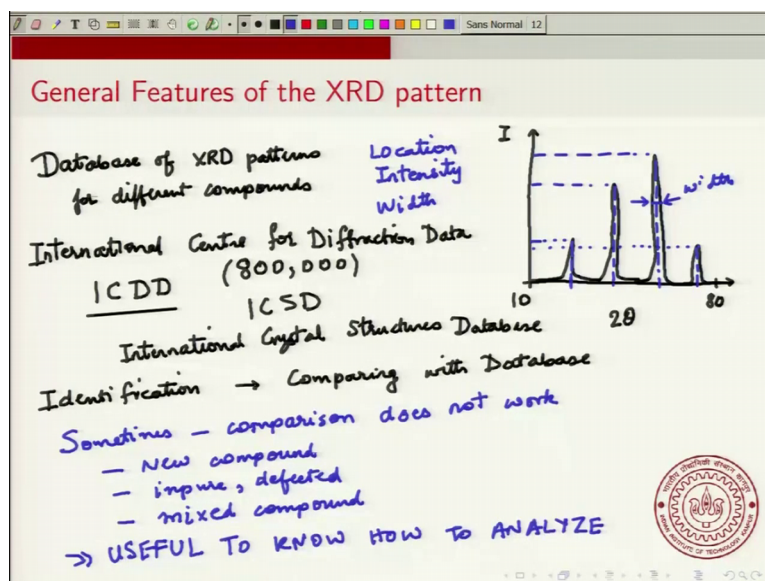 Sans Normal 12
General Features of the XRD pattern
Database of XRD patterns
for different compounds
Location
Intensity
Width
I
width
10
2θ
80
International Centre for Diffraction Data
(800,000)
ICDD
ICSD
International Crystal Structures Database
Identification → Comparing with Database
Sometimes – comparison does not work
– New compound
– inpure, defected
– mixed compound
⇒ USEFUL TO KNOW HOW TO ANALYZE
INDIAN INSTITUTE OF TECHNOLOGY KANPUR